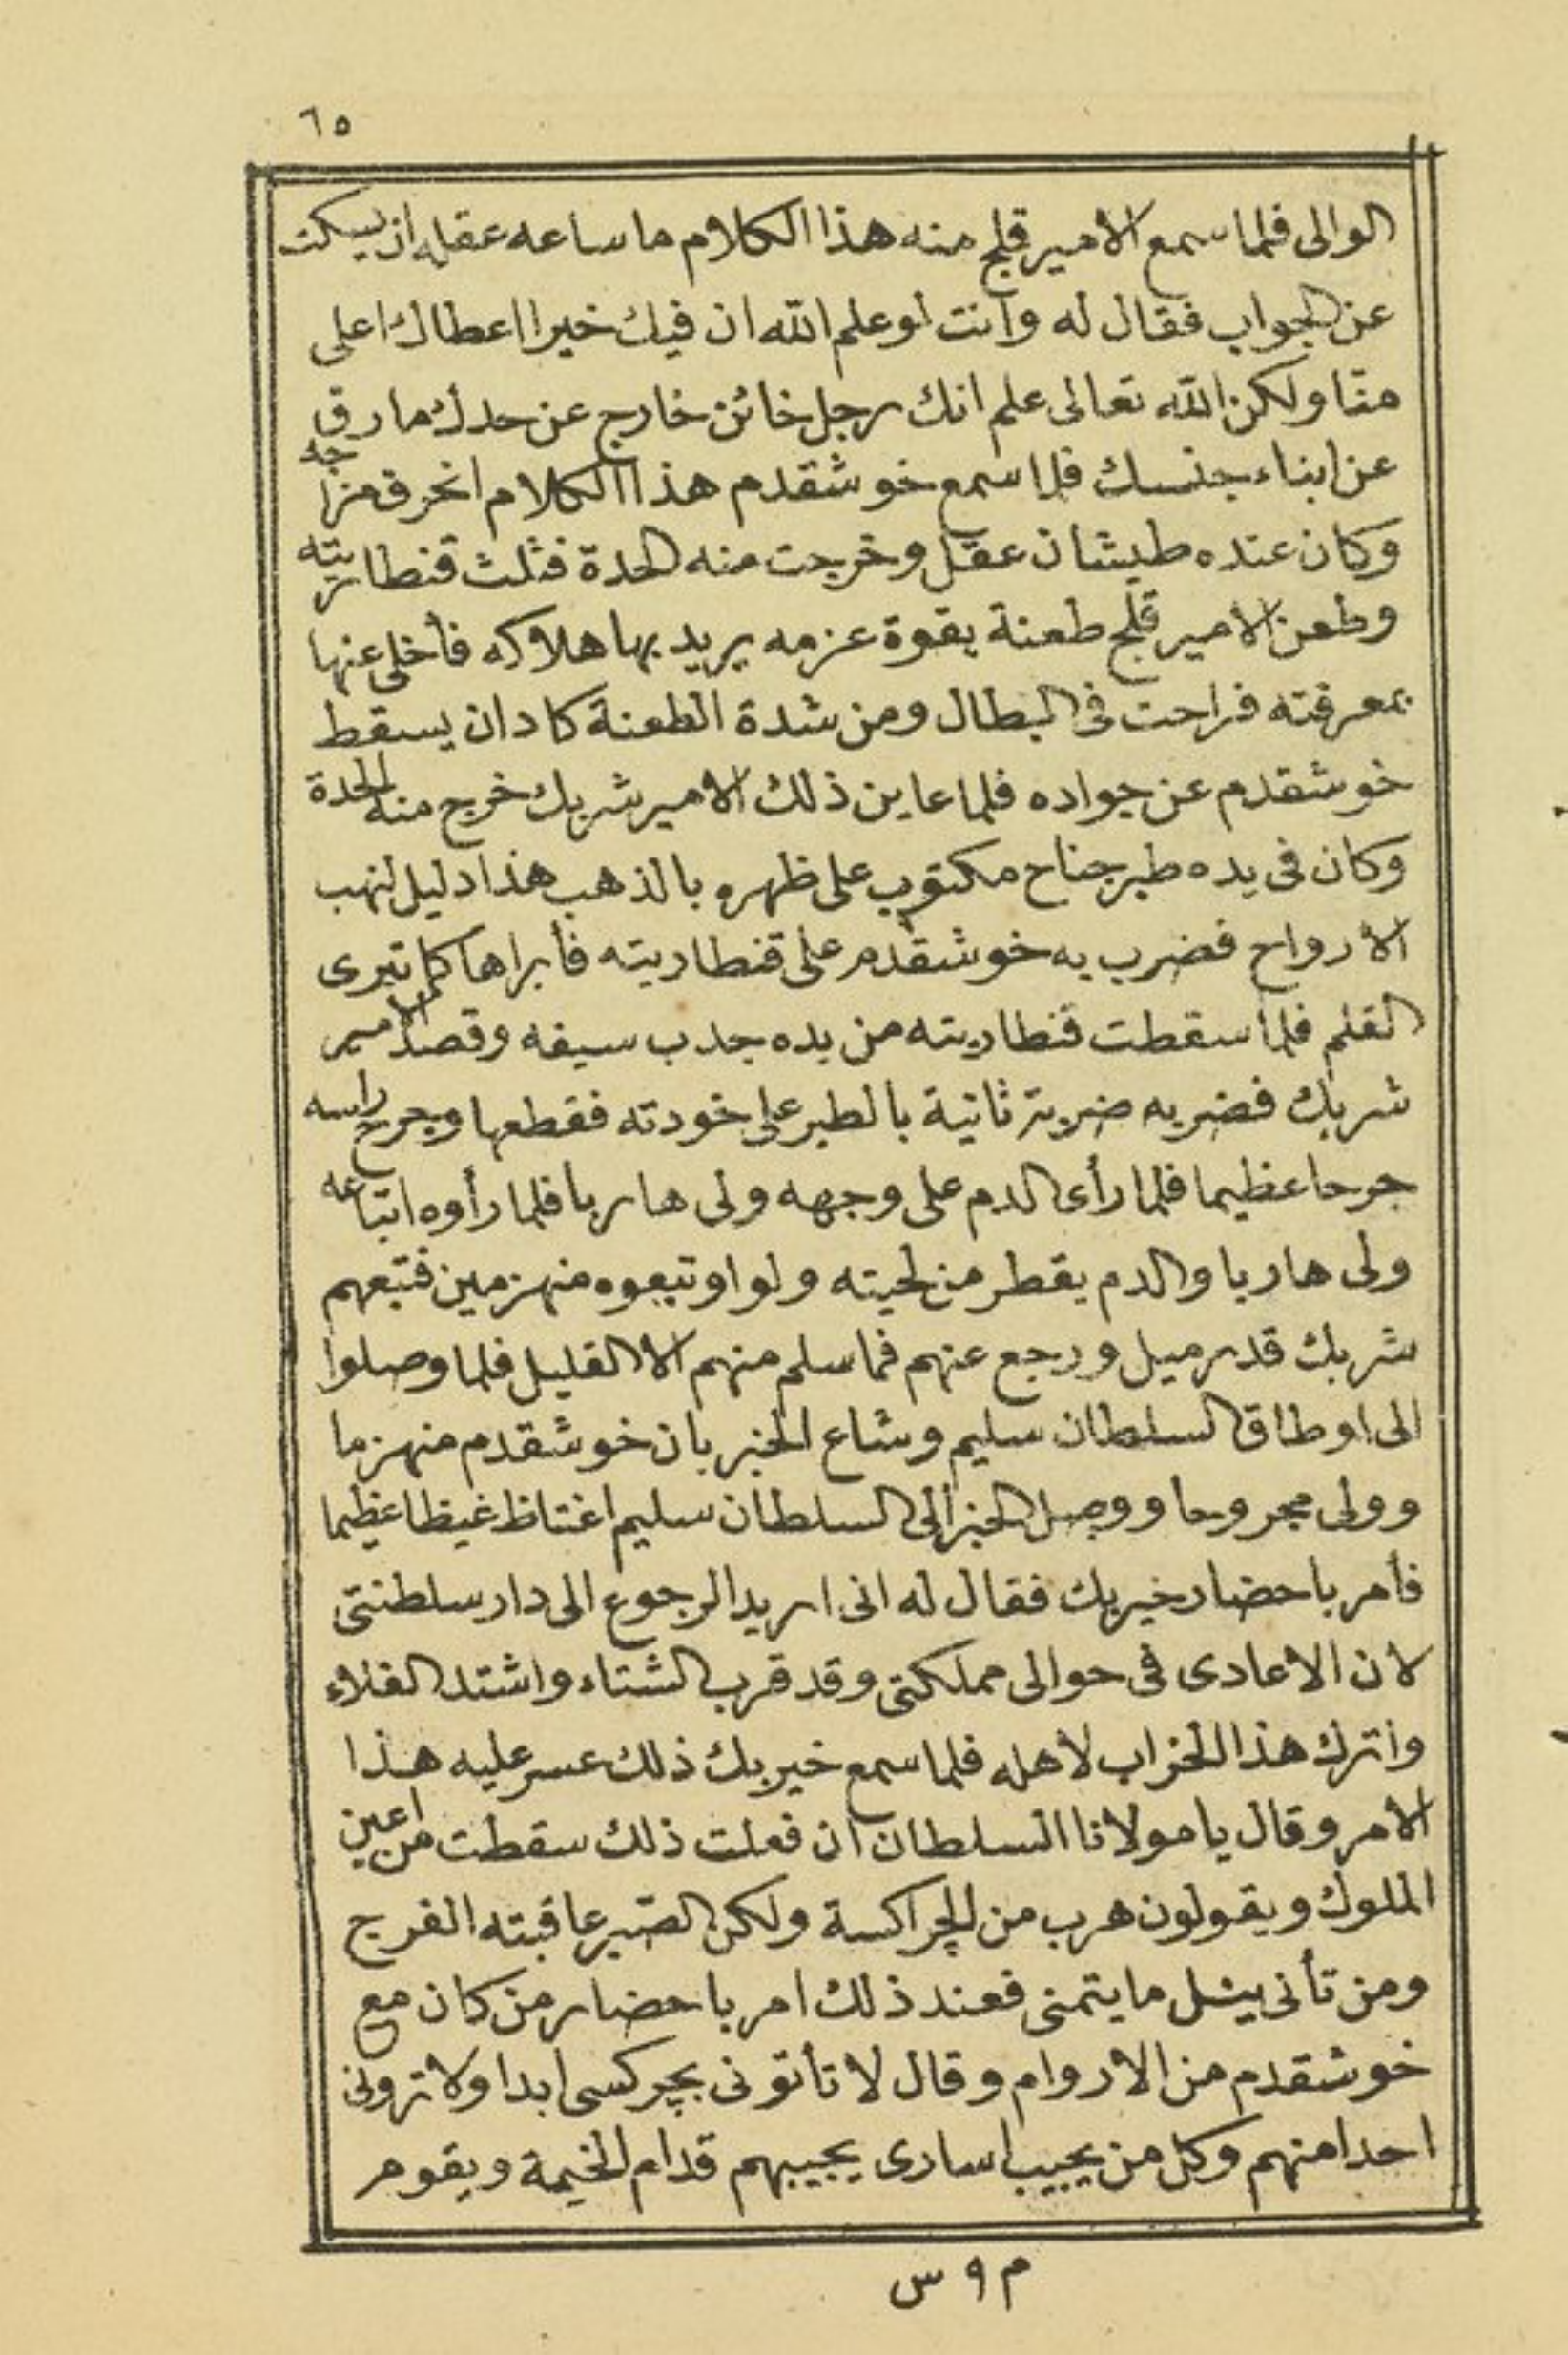 ٦٥
الوالى فلما سمع الامير قلج منه هذا الكلام ما ساعه عقله ان يسكت
عن الجواب فقال له وانت لو علم الله ان فيك خيرا اعطاك اعلى
منّا ولكن الله تعالى علم انك رجل خائن خارج عن حدك مارق
عن ابناء جنسك فلما سمع خوشقدم هذا الكلام انحرق مزاجه
وكان عنده طيشان عقل وخرجت منه الحدة فثلث قنطاريته
وطعن الامير قلج طعنة بقوة عزمه يريد بها هلاكه فأخلى عنها
بمعرفته فراحت فى البطال ومن شدة الطعنة كاد ان يسقط
خوشقدم عن جواده فلما عاين ذلك الامير شربك خرج منه الحدة
وكان فى يده طبر جناح مكتوب على ظهره بالذهب هذا دليل لنهب
الارواح فضرب به خوشقدم على قنطاريته فأبراها كما تبرى
القلم فلما سقطت قنطاريته من يده جدب سيفه وقصد الامير
شربك فضربه ضربة ثانية بالطبر على خودته فقطعها وجرح راسه
جرحا عظيما فلما رأى الدم على وجهه ولى هاربا فلما رأوه اتباعه
ولى هاربا والدم يقطر من لحيته ولوا وتبعوه منهزمين فتبعهم
شربك قدر ميل ورجع عنهم فما سلم منهم الا القليل فلما وصلوا
الى اوطاق السلطان سليم وشاع الخبر بان خوشقدم منهزما
وولى مجروحا ووصل الخبر الى السلطان سليم اغتاظ غيظا عظيما
فأمر باحضار خيربك فقال له انى اريد الرجوع الى دار سلطنتى
لان الاعادى فى حوالى مملكتى وقد قرب الشتاء واشتد الغلاء
واترك هذا الخراب لاهله فلما سمع خيربك ذلك عسر عليه هذا
الامر وقال يا مولانا السلطان ان فعلت ذلك سقطت من اعين
الملوك ويقولون هرب من الجراكسة ولكن الصّبر عاقبته الفرج
ومن تأنى ينل ما يتمنى فعند ذلك امر باحضار من كان مع
خوشقدم من الاروام وقال لا تأتونى بجركسى ابدا ولا ترونى
احدا منهم وكل من يجيب اسارى يجيبهم قدام الخيمة ويقوم
م ٩ س